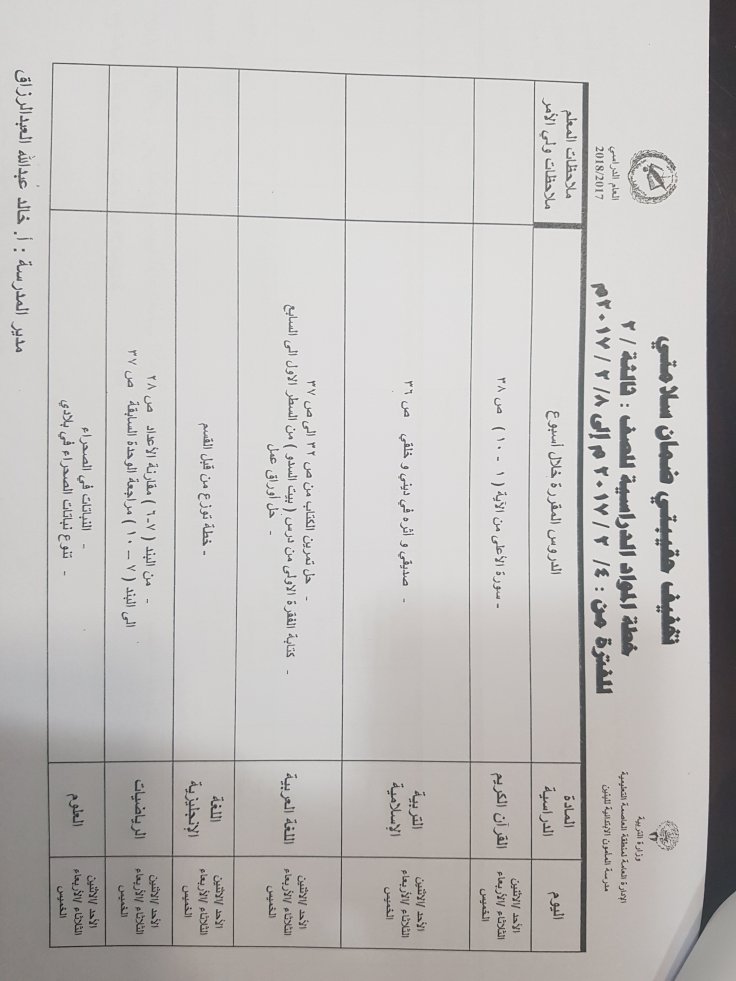 وزارة التربية
الإدارة العامة لمنطقة العاصمة التعليمية
مدرسة المأمون الابتدائية للبنين
العام الدراسي
2018/2017
تخفيف حقيبتي ضمان سلامتي
خطة المواد الدراسية للصف : ثالثة / ٢
للفترة من : ٤ / ٢ / ٢٠١٧ م إلى ٨ / ٢ / ٢٠١٧ م
اليوم
المادة
الدراسية
الدروس المقررة خلال أسبوع
ملاحظات المعلم
ملاحظات ولي الأمر
الأحد /الاثنين
الثلاثاء /الأربعاء
الخميس
القرآن الكريم
- سورة الأعلى من الآية ( ١ - ١٠ ) ص ٣٨
الأحد /الاثنين
الثلاثاء /الأربعاء
الخميس
التربية
الإسلامية
- صديقي و أثره في ديني و خلقي ص ٣٦
الأحد /الاثنين
الثلاثاء /الأربعاء
الخميس
اللغة العربية
- حل تمرين الكتاب من ص ٣٢ الى ص ٣٧
- كتابة الفقرة الاولى من درس ( بيت السدو ) من السطر الاول الى السابع
- حل أوراق عمل
الأحد /الاثنين
الثلاثاء /الأربعاء
الخميس
اللغة
الإنجليزية
- خطة توزع من قبل القسم
الأحد /الاثنين
الثلاثاء /الأربعاء
الخميس
الرياضيات
- من البند ( ٧-٦ ) مقارنة الأعداد ص ٢٨
الى البند ( ٧ – ١٠ ) مراجعة الوحدة السابقة ص ٣٧
الأحد /الاثنين
الثلاثاء /الأربعاء
الخميس
العلوم
- النباتات في الصحراء
- تنوع نباتات الصحراء في بلادي
مدير المدرسة : أ. خالد عبدالله العبدالرزاق